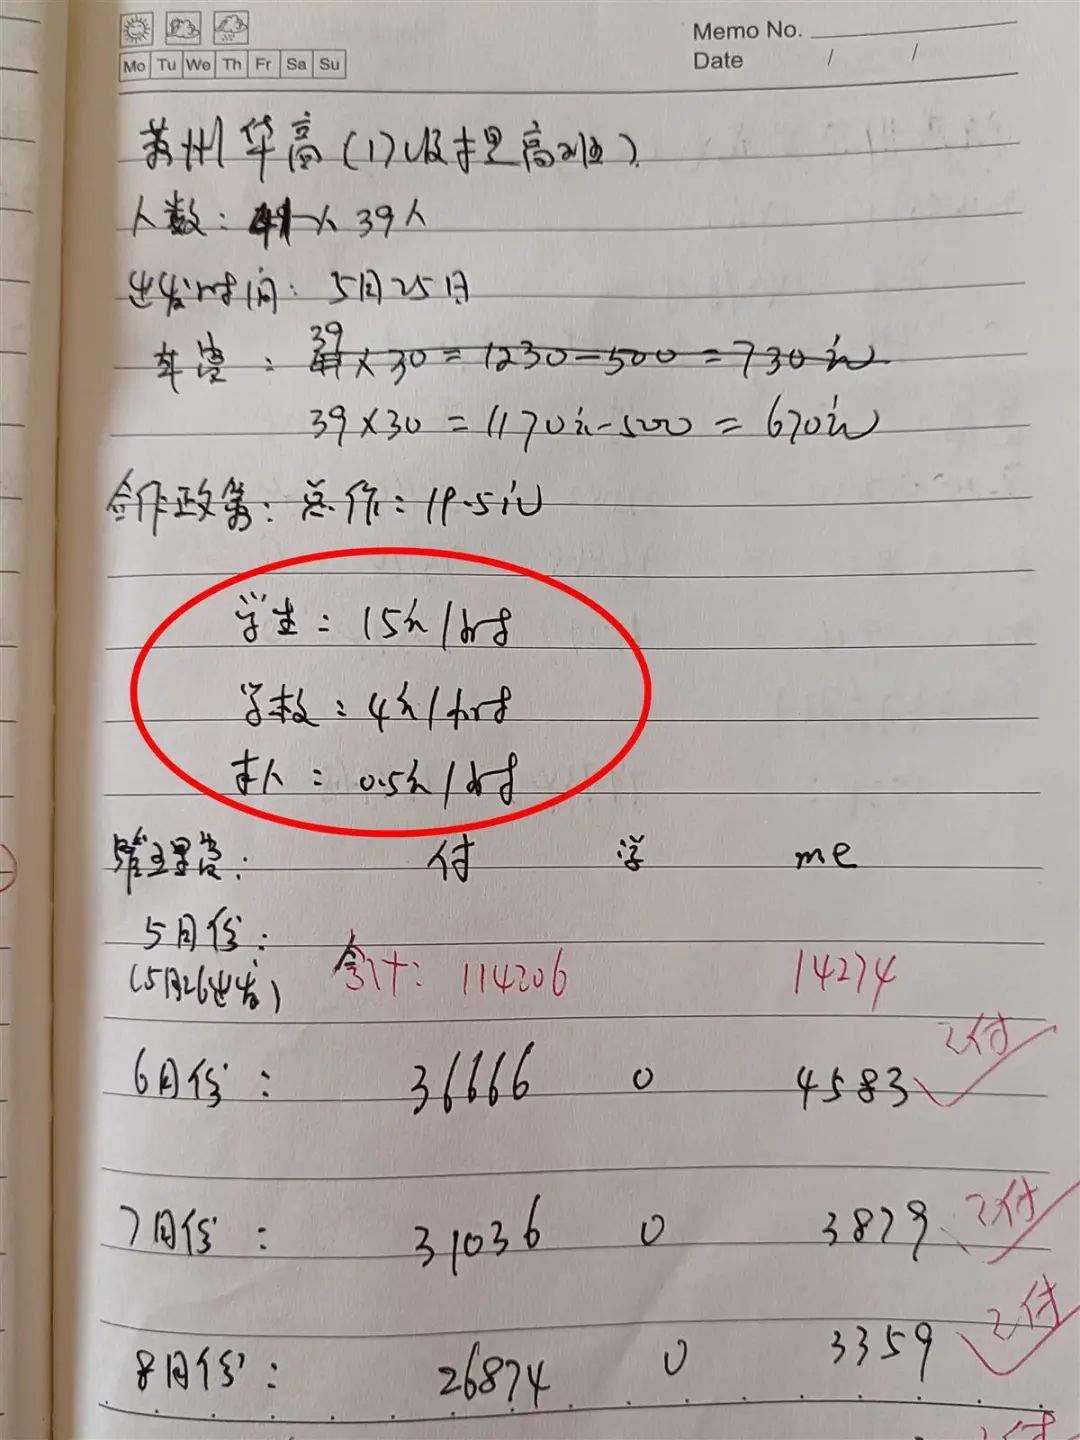 Memo No.
Mo Tu We Th Fr Sa Su
Date / /
苏州华高(17级提高班)
人数: 41人 39人
出发时间: 5月25日
车费: 39 41×30=1230-500=730元
39×30=1170元-500=670元
合作政策: 总价: 19.5元
学生: 15元/时
学校: 4元/时
本人: 0.5元/时
管理费: 付 学 me
5月份:
(5月26出发) 合计: 114206 14274
6月份: 36666 0 4583 已付
7月份: 31036 0 3879 已付
8月份: 26874 0 3359 已付